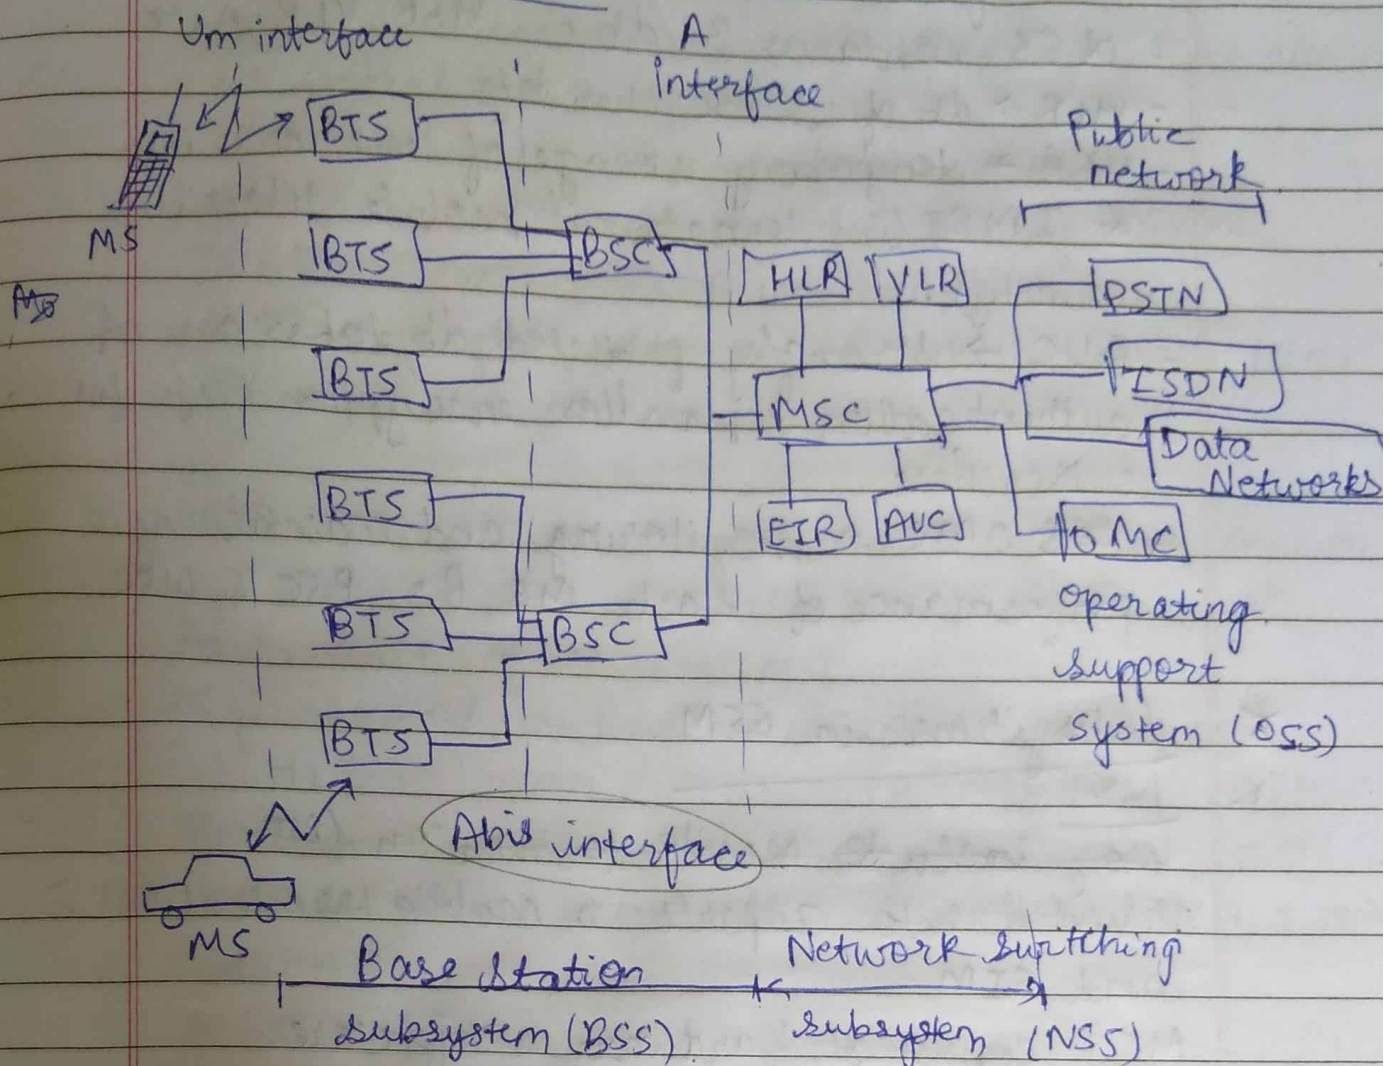 Um interface
A
interface
Public
network
BTS
MS
BTS
BSC
HLR
VLR
PSTN
BTS
ISDN
MSC
Data
Networks
BTS
EIR
AUC
OMC
operating
support
system (OSS)
BTS
BSC
BTS
Abis interface
MS
Base Station
subsystem (BSS)
Network switching
subsystem (NSS)